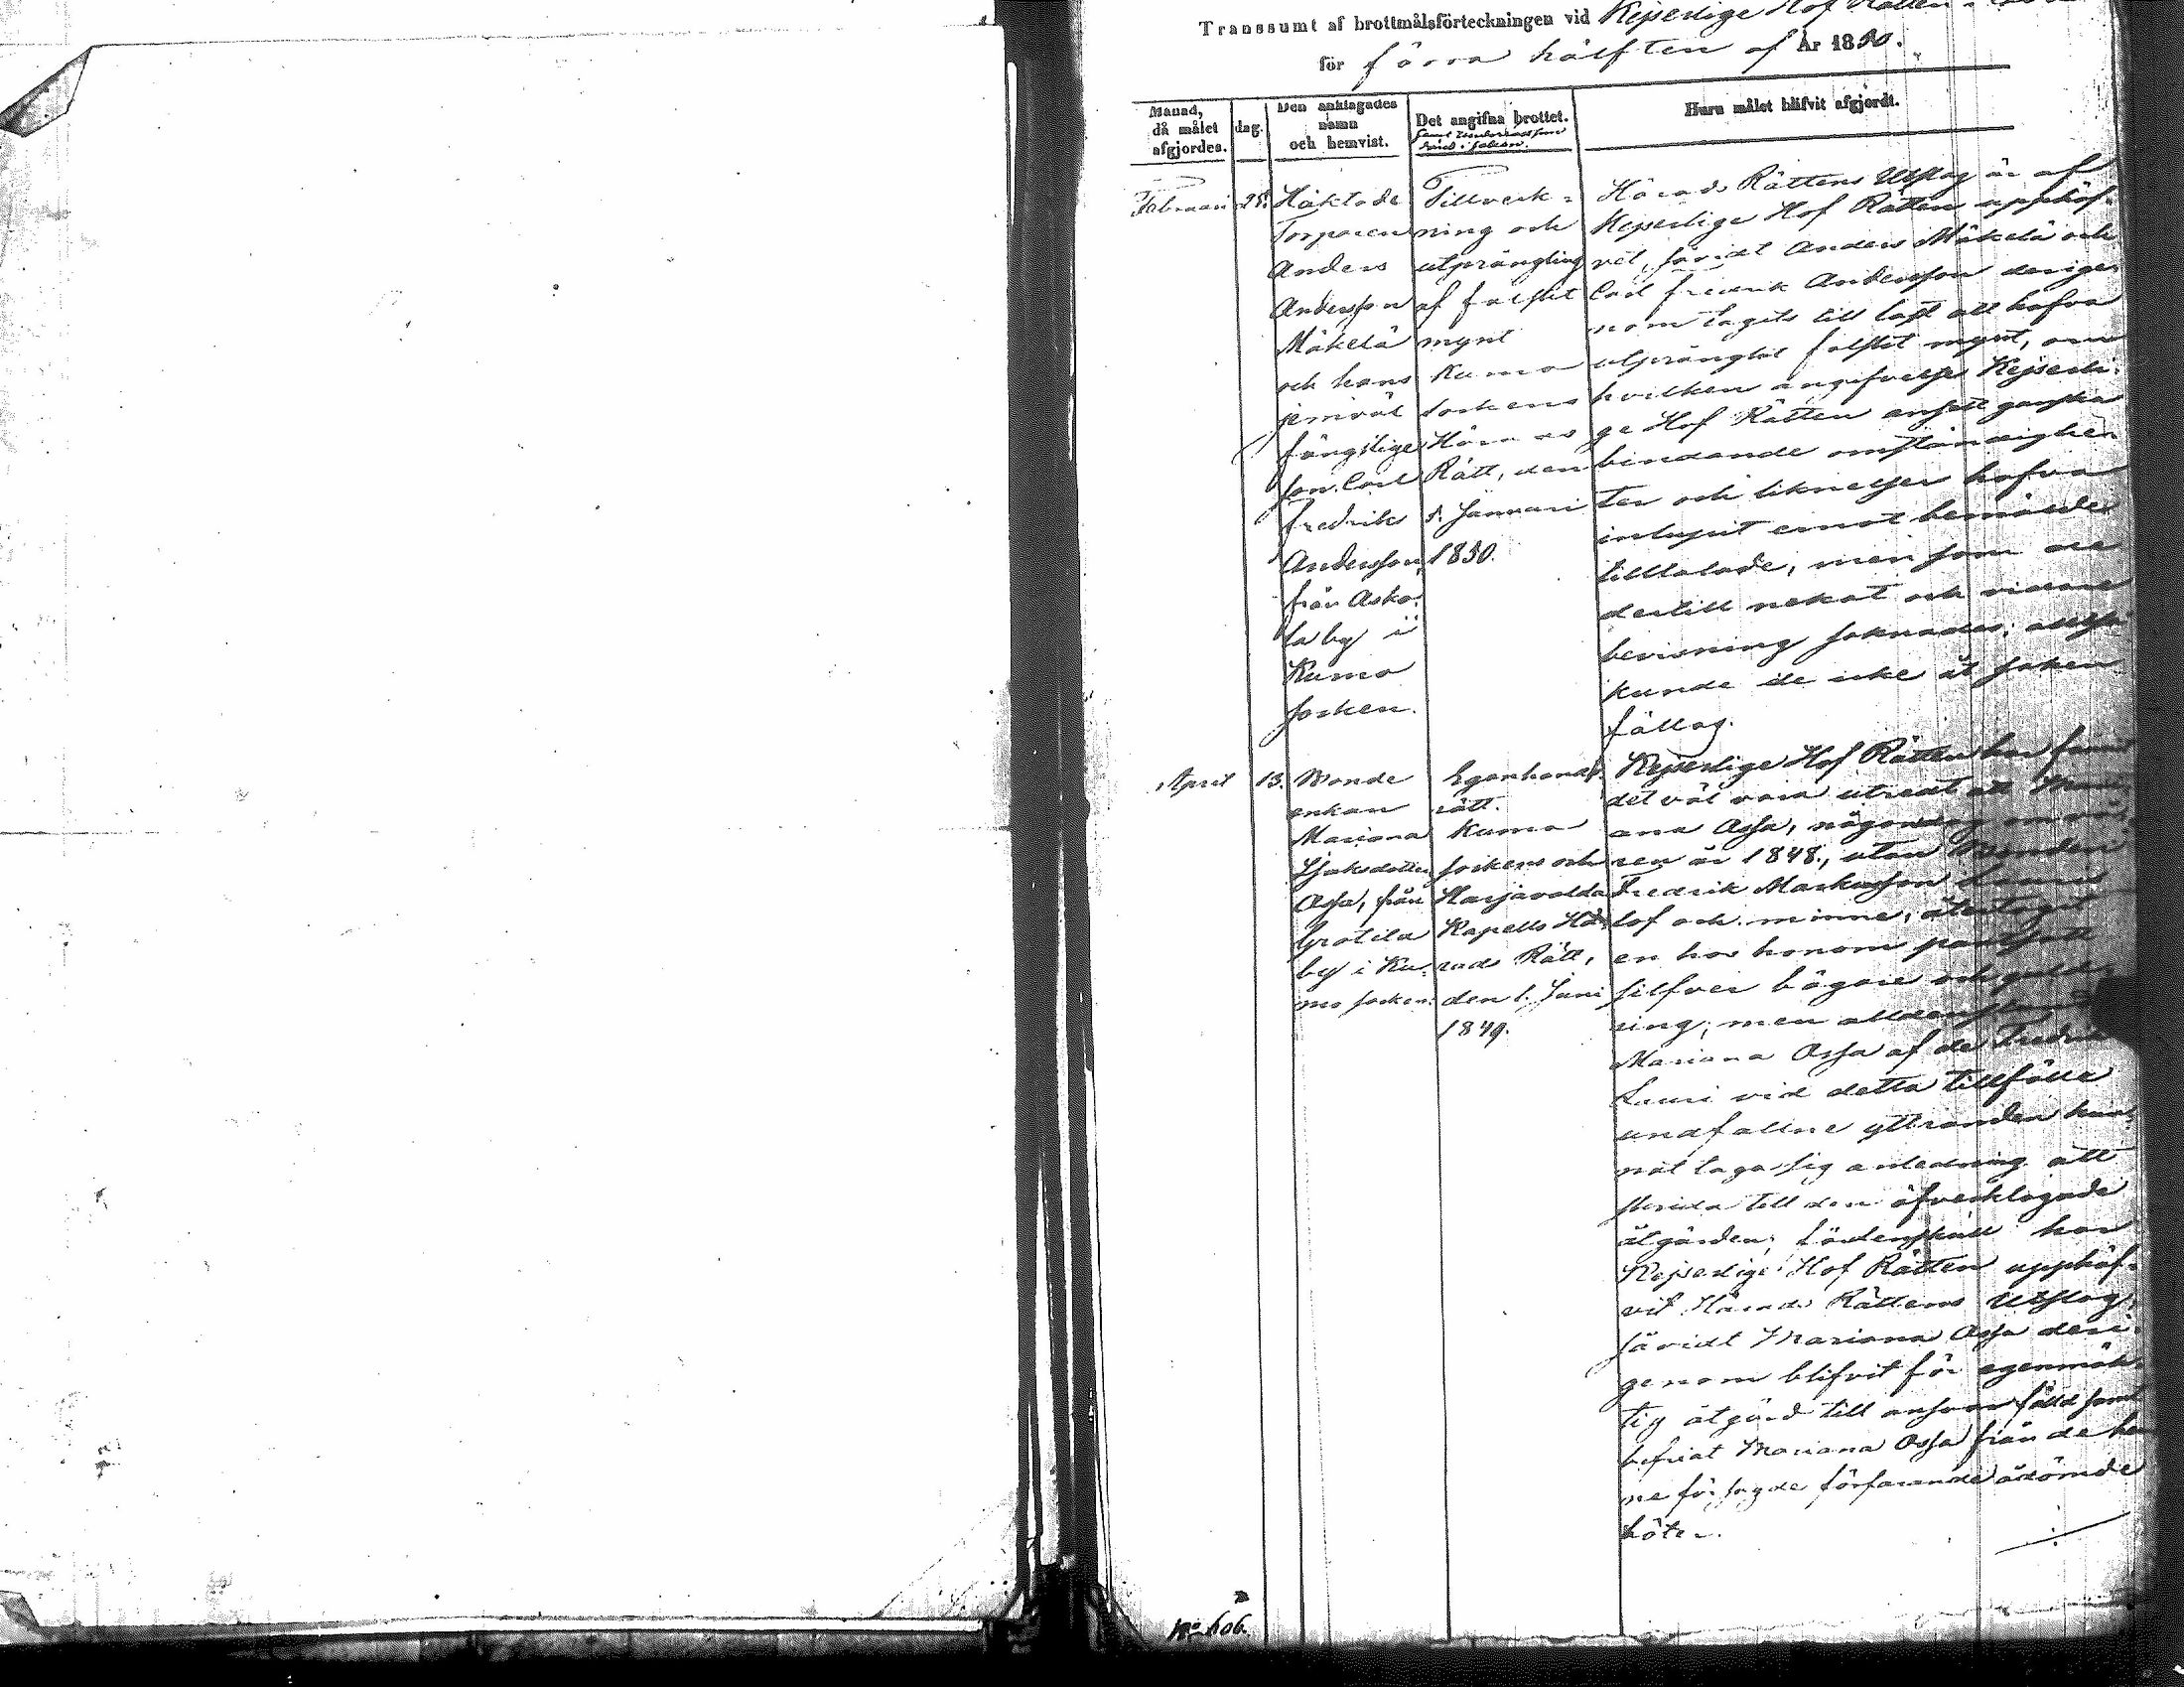 Transsumt af brottmålsförteckningen vid Kejserlige Hof Rätten
för förra hälften af År 1850.
Månad, då målet afgjordes.
dag.
Den anklagades namn och hemvist.
Det angifna brottet.
Huru målet blifvit afgjordt.
Februari
25.
Häktade
Torparen
Anders
Andersson
Mäkelä
och hans
jemväl
fängslige
son Carl
Fredrik
Andersson,
från Asko-
la by i
Kumo
socken.
Tillverk-
ning och
utprångling
af falskt
mynt
Kumo
sockens
Härads
Rätt, den
Januari
1850.
Härads Rättens Utslag är af
Kejserlige Hof Rätten upphäf-
vet, såvidt Anders Mäkelä och
Carl Fredrik Andersson derige-
nom lagts till last att hafva
utprånglat falskt mynt, om
hvilken angifvelse Kejserli-
ge Hof Rätten ansett ganska
bindande omständighe-
ter och liknelser hafva
inlupit emot bemälde
tilltalade, men som de
dertill nekat och vidare
bevisning saknades, alltså
kunde de icke åt saken
fällas.
April
13.
Bonde
enkan
Mariana
Isaksdotter
Assa, från
Grotila
by i Ku-
mo socken.
Egenhands-
rätt.
Kumo
sockens och
Harjavalda
Kapells Hä-
rads Rätt,
den 1. Juni
1849.
Kejserlige Hof Rätten har funnit
det väl vara utredt att Mari-
ana Assa, någon dag om vå-
ren år 1848, utan Bonden
Fredrik Markusson Lauris
lof och minne, återtagit
en hos honom pantsatt
silfver bägare och guld-
ring; men alldenstund
Mariana Assa af de Fredrik
Lauri vid detta tillfälle
undfallne yttranden kun-
nat taga sig anledning att
skrida till den öfverklagade
åtgärden, fördenskull har
Kejserlige Hof Rätten upphäf-
vit Härads Rättens Utslag,
såvidt Mariana Assa deri-
genom blifvit för egenmäk-
tig åtgärd till ansvar fälld samt
befriat Mariana Assa från de hen-
ne för sagde förfarande ådömde
böter.
No 606.